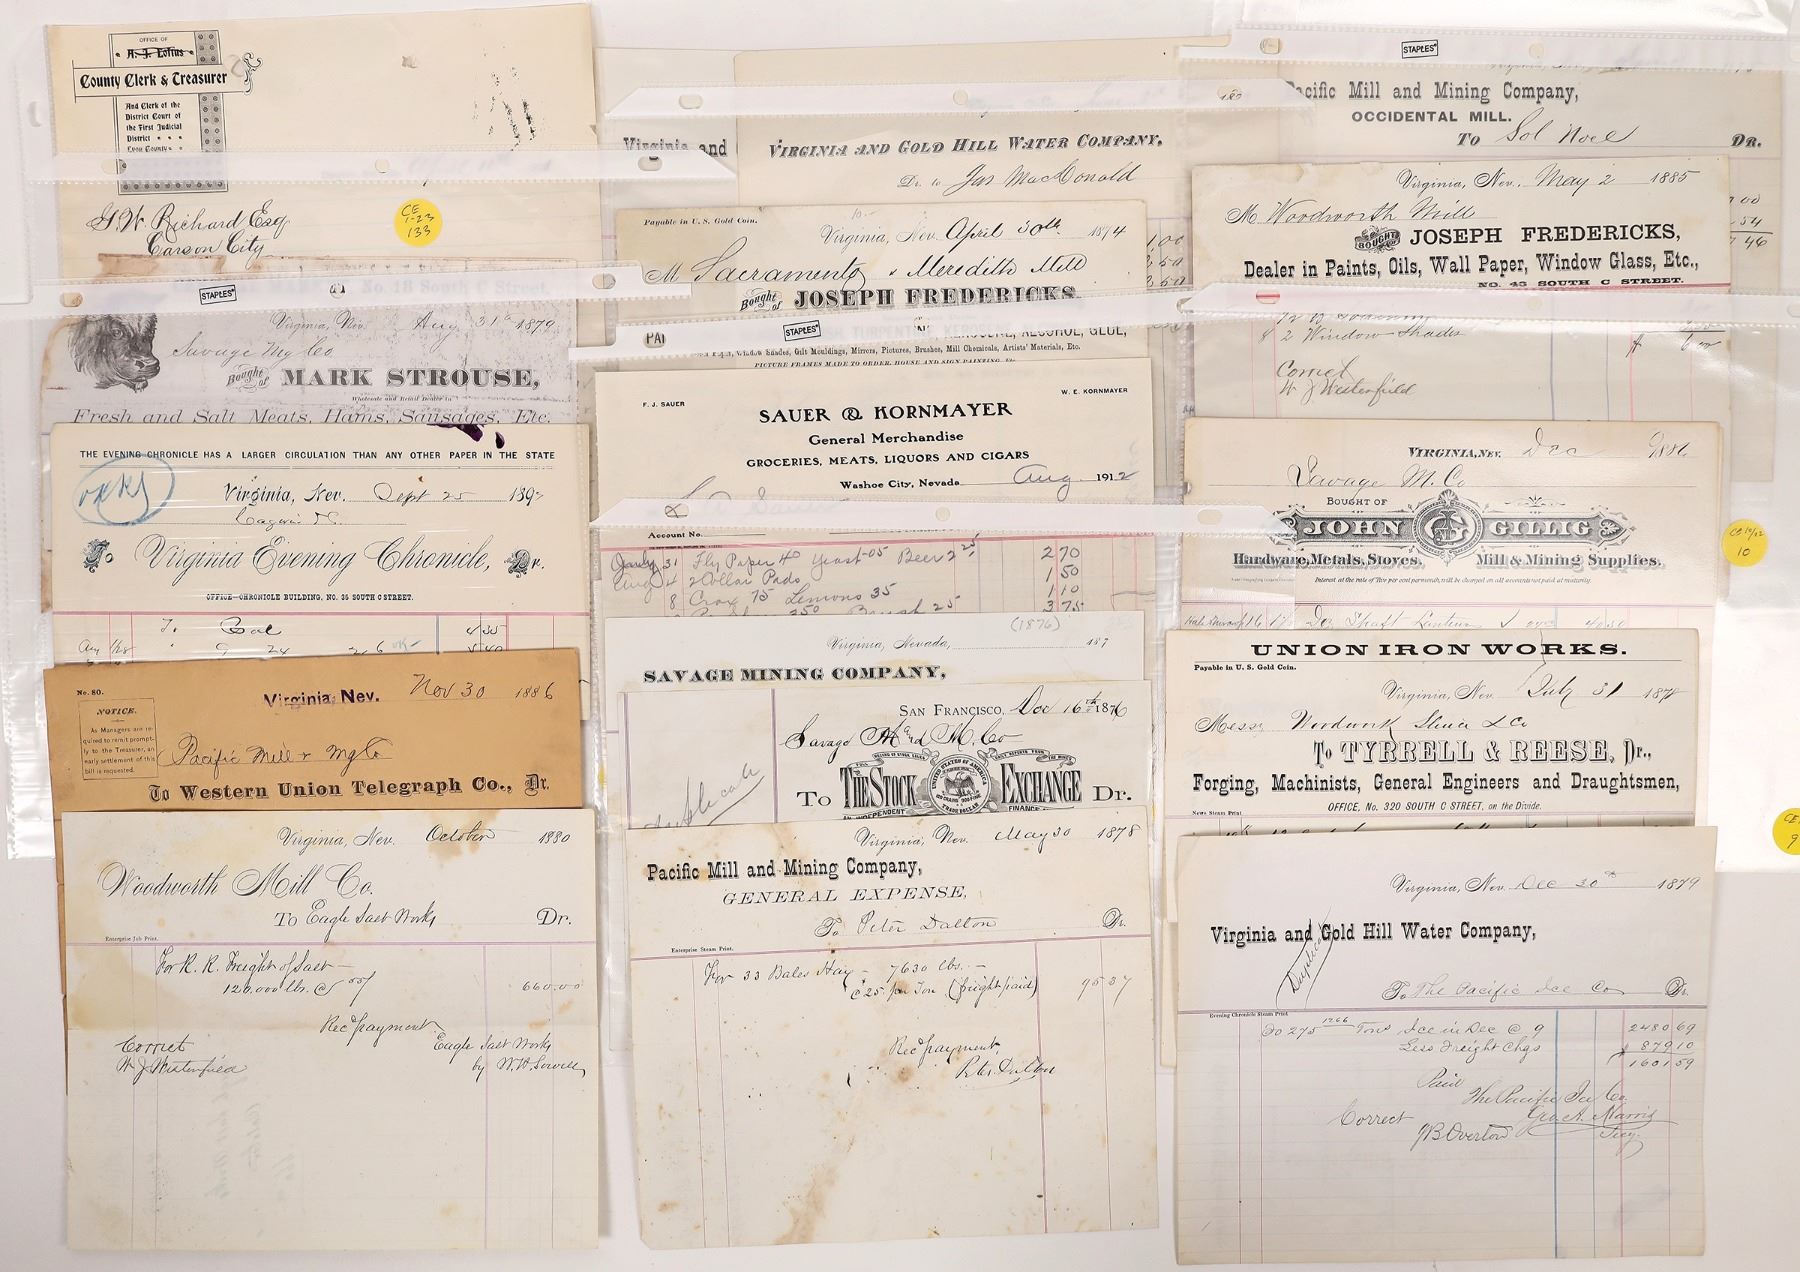 OFFICE OF
A. J. Loftus
County Clerk & Treasurer
And Clerk of the
District Court of
the First Judicial
District
Lyon County
G. W. Richard Esq
Carson City
CE
1-23
133
STAPLES
No. 18 South C Street,
Virginia, Nev. Aug 31st 1879
Savage Mg Co
Bought of MARK STROUSE,
Wholesale and Retail Dealer in
Fresh and Salt Meats, Hams, Sausages, Etc.
THE EVENING CHRONICLE HAS A LARGER CIRCULATION THAN ANY OTHER PAPER IN THE STATE
Virginia, Nev. Sept 25 189
To Virginia Evening Chronicle, Dr.
OFFICE-CHRONICLE BUILDING, NO. 35 SOUTH C STREET.
To Bal 4 35
No. 80.
Virginia, Nev. Nov 30 1886
NOTICE.
As Managers are re-
quired to remit prompt-
ly to the Treasurer, an
early settlement of this
bill is requested.
Pacific Mill & Mg Co
To Western Union Telegraph Co., Dr.
Virginia, Nev. October 1880
Woodworth Mill Co.
To Eagle Salt Works Dr.
Enterprise Job Print.
For R. R. Freight of Salt
120,000 lbs. @ 660.00
Rec'd payment
Correct Eagle Salt Works
W J Westerfield by W. W.
Virginia and
VIRGINIA AND GOLD HILL WATER COMPANY,
Dr. to Jas MacDonald
Payable in U. S. Gold Coin.
Virginia, Nev. April 30th 1874
M Sacramento & Meredith Mill
Bought of JOSEPH FREDERICKS,
TURPENTINE, KEROSENE, ALCOHOL, GLUE,
Paper, Window Shades, Gilt Mouldings, Mirrors, Pictures, Brushes, Mill Chemicals, Artists' Materials, Etc.
PICTURE FRAMES MADE TO ORDER. HOUSE AND SIGN PAINTING, Etc.
STAPLES
F. J. SAUER W. E. KORNMAYER
SAUER & KORNMAYER
General Merchandise
GROCERIES, MEATS, LIQUORS AND CIGARS
Washoe City, Nevada Aug. 1912
Account No.
July 31 Fly Paper 40 Yeast 05 Beer 2 25 2 70
Aug 4 2 Collar Pads 1 50
8 75 Lemons 35 1 10
Brush 25 3 75
(1876)
Virginia, Nevada, 187
SAVAGE MINING COMPANY,
SAN FRANCISCO, Dec 16th 1876
Savage M. Co
To THE STOCK EXCHANGE Dr.
UNITED STATES OF AMERICA
TRADE DOLLAR
AN INDEPENDENT
Duplicate
Virginia, Nev. May 30 1878
Pacific Mill and Mining Company,
GENERAL EXPENSE,
To Peter Dalton Dr.
Enterprise Steam Print.
For 33 Bales Hay - 7630 lbs.
@ 25. per Ton (freight paid) 95 37
Rec'd payment,
Dalton
STAPLES
Pacific Mill and Mining Company,
OCCIDENTAL MILL.
To Sol Noel Dr.
Virginia, Nev. May 2 1885
M Woodworth Mill
BOUGHT OF JOSEPH FREDERICKS,
Dealer in Paints, Oils, Wall Paper, Window Glass, Etc.,
NO. 43 SOUTH C STREET.
2 Window Shades
Correct
W J Westerfield
VIRGINIA, NEV. Dec 1886
Savage M. Co
BOUGHT OF
JOHN GILLIG
Hardware, Metals, Stoves, Mill & Mining Supplies.
CE
10
UNION IRON WORKS.
Payable in U. S. Gold Coin.
Virginia, Nev. July 31 187
Mess
To TYRRELL & REESE, Dr.,
Forging, Machinists, General Engineers and Draughtsmen,
OFFICE, No. 320 SOUTH C STREET, on the Divide.
News Steam Print.
CE
9
Virginia, Nev. Dec 30th 1879
Virginia and Gold Hill Water Company,
Duplicate
To The Pacific Ice Co Dr.
Evening Chronicle Steam Print
Tons Ice in Dec @ 9 2480 69
Less Freight Chgs 879 10
1601 59
Paid
The Pacific Ice Co.
Correct Geo. A. Morris
J B Overton Secy.